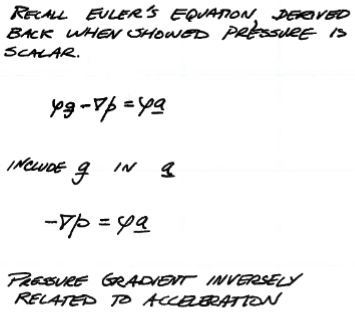 RECALL EULER'S EQUATION, DERIVED
BACK WHEN SHOWED PRESSURE IS
SCALAR.
φg - ∇p = φa
INCLUDE g IN a
-∇p = φa
PRESSURE GRADIENT INVERSELY
RELATED TO ACCELERATION